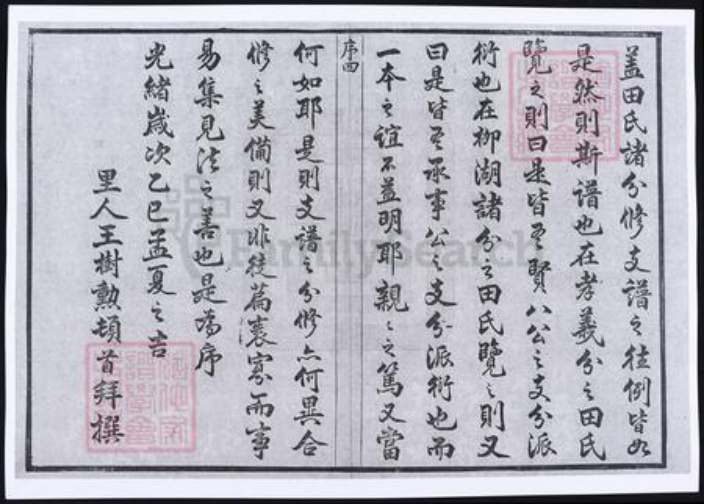 蓋田氏諸分修支譜之往例皆如
是然則斯譜也在孝義分之田氏
覽之則曰是皆吾賢八公之支分派
衍也在柳湖諸分之田氏覽之則又
曰是皆吾承事公之支分派衍也而
一本之誼不益明耶親〻之篤又當
序四
何如耶是則支譜之分修亦何異合
修之美備則又非徒篇袠寡而事
易集見法之善也是為序
光緒歲次乙巳孟夏之吉
里人王樹勲頓首拜撰
FamilySearch